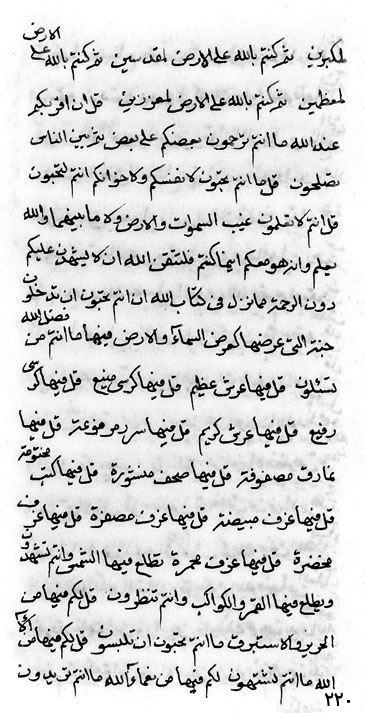 لمكبرين ثم كنتم بالله على الارض لمقدسين ثم كنتم بالله على الارض
لمعظمين ثم كنتم بالله على الارض لمعززين قل ان اقربكم
عند الله ما انتم ترحمون بعضكم على بعض ثم بين الناس
تصلحون قل ما انتم تحبون لانفسكم ولاخوانكم انتم لتحبون
قل انتم لا تعلمون غيب السموات والارض ولا ما بينهما والله
يعلم وانه هو معكم اينما كنتم فلتتقن الله ان لا يشهدن عليكم
دون الرحمة مما نزل فى كتاب الله ان انتم تحبون ان تدخلون
جنة التى عرضها كعرض السماء والارض فيها ما انتم من فضل الله
تسئلون قل فيها عرش عظيم قل فيها كرسى منيع قل فيها كرسى
رفيع قل فيها عرش كريم قل فيها سرر مرفوعة قل فيها
نمارق مصفوفة قل فيها صحف منشورة قل فيها كتب مختومة
قل فيها غرف مبيضة قل فيها غرف مصفرة قل فيها غرف
مخضرة قل فيها غرف محمرة تطلع فيها الشمس وانتم تشهدون
ويطلع فيها القمر والكواكب وانتم تنظرون قل لكم فيها من
الحرير والاستبرق ما انتم تحبون ان تلبسون قل لكم فيها من آلاء
الله ما انتم تشتهون لكم فيها من نعماء الله ما انتم تريدون
٢٢٠